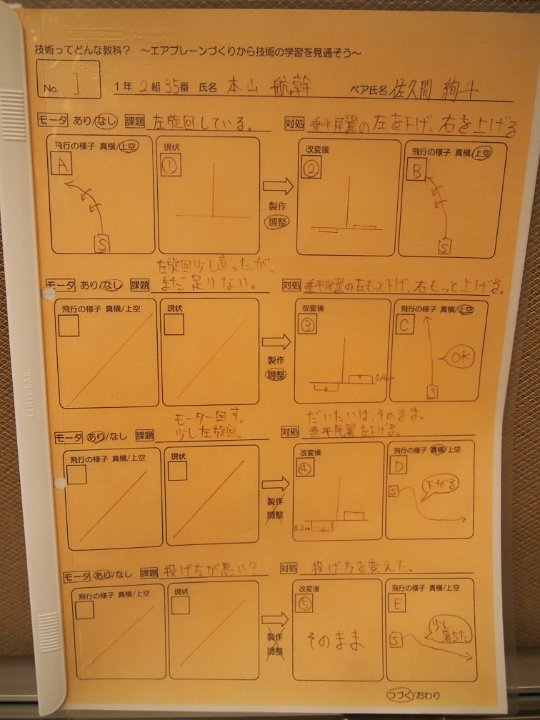 技術ってどんな教科? ～エアプレーンづくりから技術の学習を見通そう～
No. 1 1年 2組 35番 氏名 本山 航幹 ペア氏名 佐久間 絢斗
モータ あり/なし 課題 左旋回している。 対処 垂平尾翼の左を下げ、右を上げる
飛行の様子 真横/上空 現状 改変後 飛行の様子 真横/上空
A ① ② B
製作
調整
S S
左旋回少し直ったが、
モータ あり/なし 課題 まだ足りない。 対処 垂平尾翼の左もっと下げ、右もっと上げる。
飛行の様子 真横/上空 現状 改変後 飛行の様子 真横/上空
③ C
製作
調整
OK
S
モーター回す。 だいたいは、そのまま。
モータ あり/なし 課題 少し左旋回。 対処 垂平尾翼を上げる。
飛行の様子 真横/上空 現状 改変後 飛行の様子 真横/上空
④ D
製作
調整
S 下がる
モータ あり/なし 課題 投げ方が悪い? 対処 投げ方を変えた。
飛行の様子 真横/上空 現状 改変後 飛行の様子 真横/上空
⑤ E
製作
調整
そのまま
S 少し落ちた
つづく/おわり